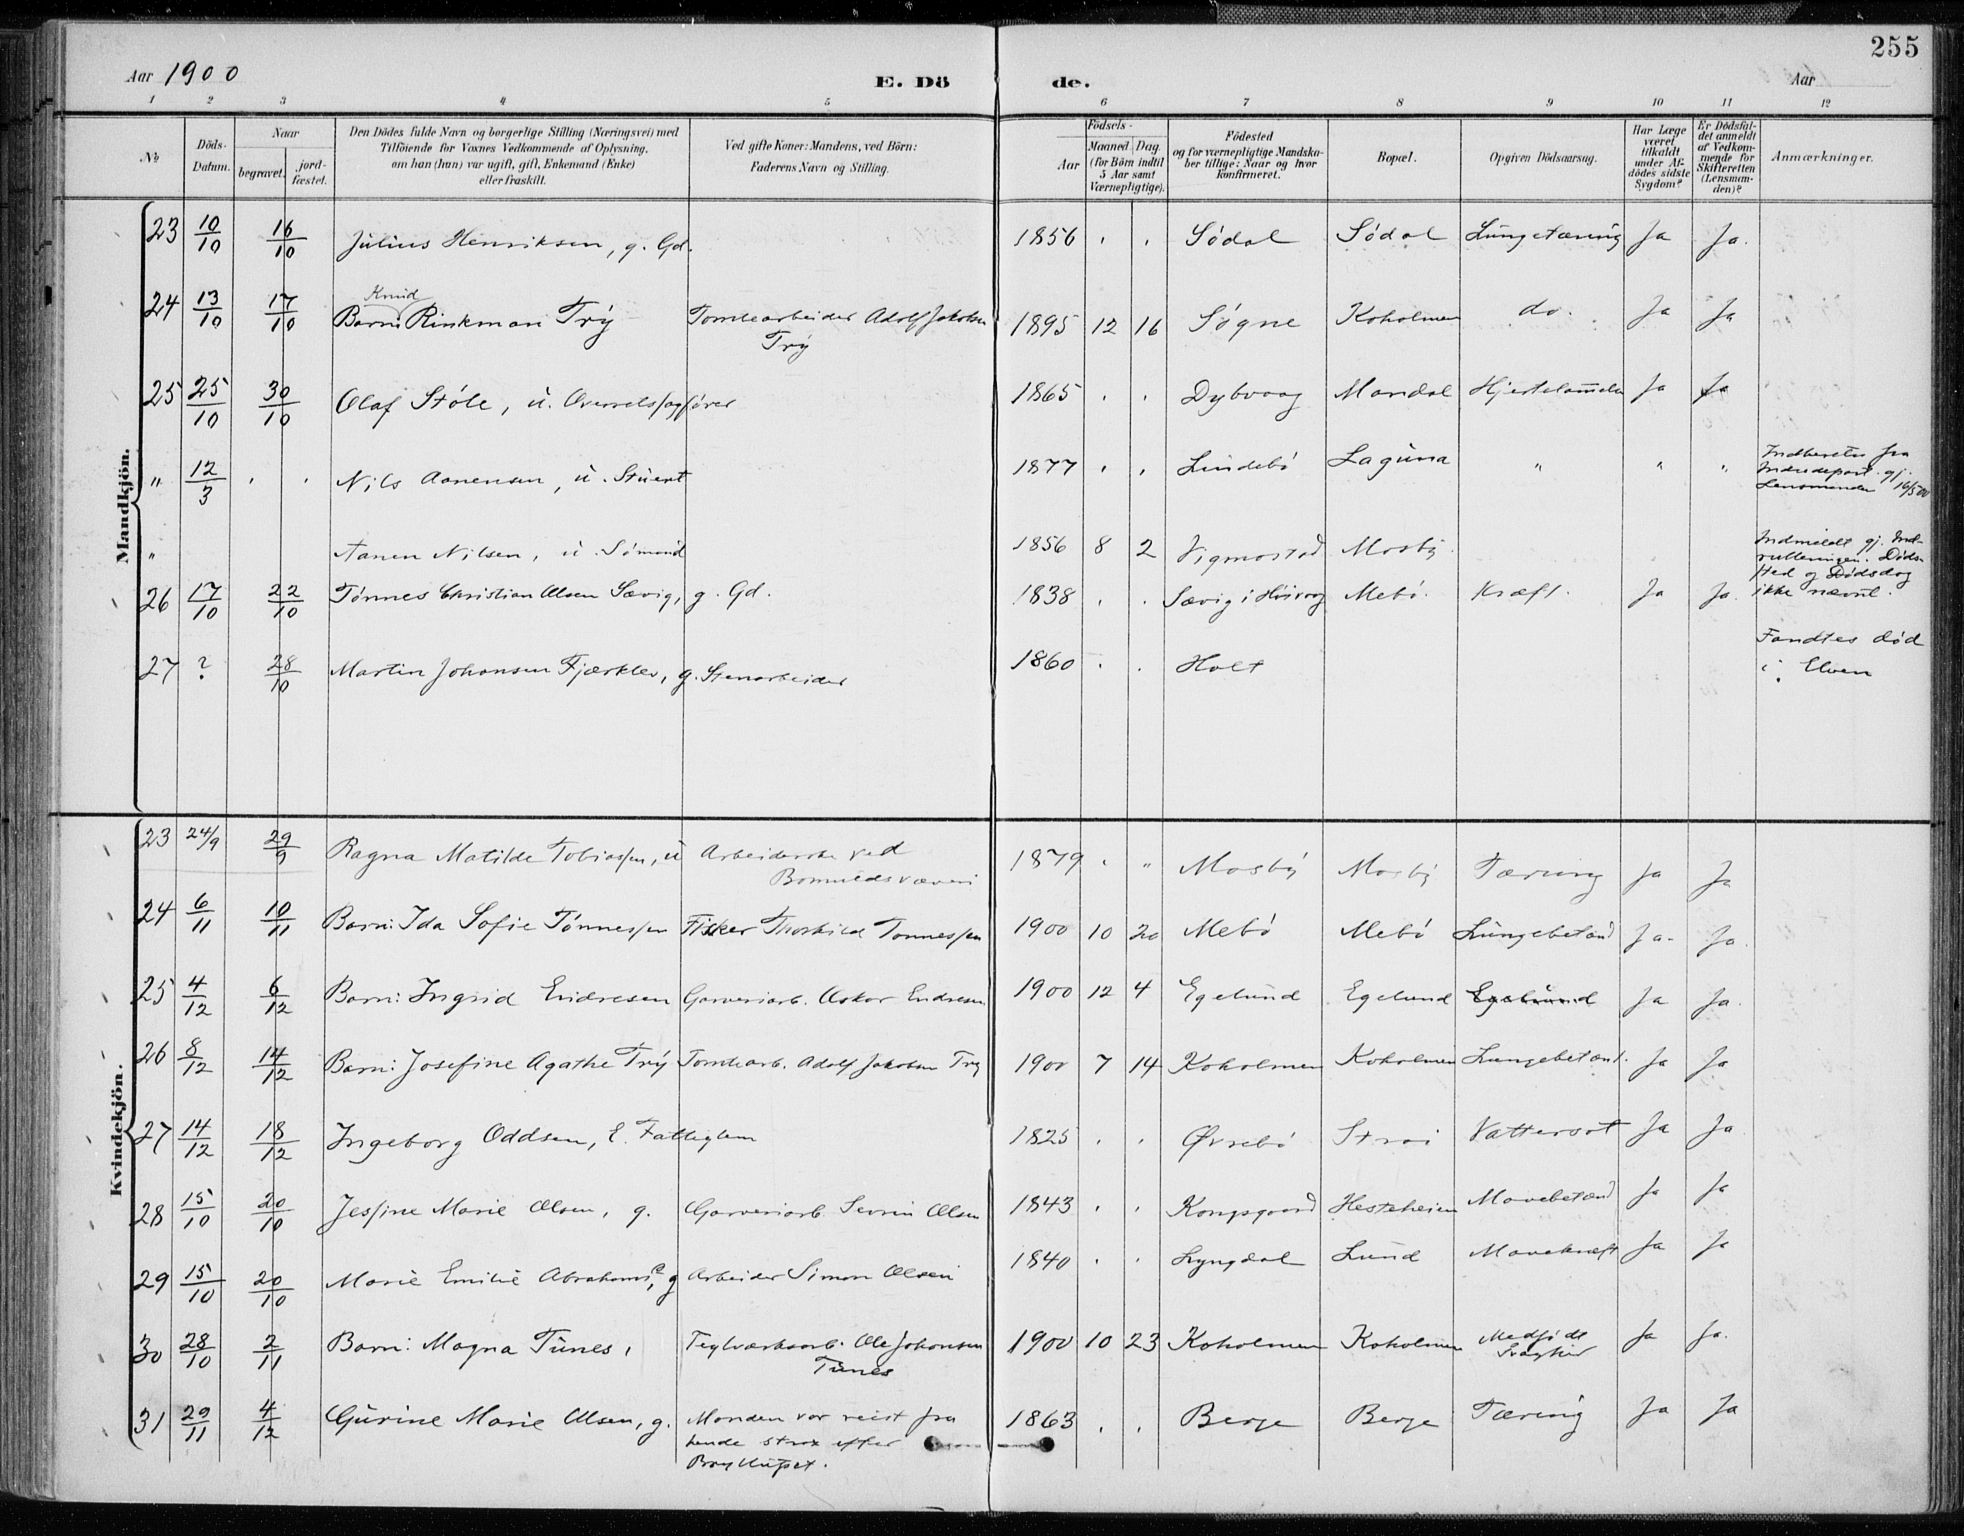 255
Aar 1900 E. Dö de. Aar
1 2 3 4 5 6 7 8 9 10 11 12
№
Döds-Datum.
Naar
begravet.
jord-fæstet.
Den Dödes fulde Navn og borgerlige Stilling (Næringsvei) med
Tilföiende for Voxnes Vedkommende af Oplysning,
om han (hun) var ugift, gift, Enkemand (Enke)
eller fraskilt.
Ved gifte Koner: Mandens, ved Börn:
Faderens Navn og Stilling.
Födsels-
Aar
Maaned. Dag.
(for Börn indtil
5 Aar samt
Værnepligtige).
Födested
og for værnepligtige Mandska-
ber tillige: Naar og hvor
konfirmeret.
Bopæl.
Opgiven Dödsaarsag.
Har Læge
været
tilkaldt
under Af-
dödes sidste
Sygdom?
Er Dödsfal-
det anmeldt
af Vedkom-
mende for
Skifteretten
(Lensman-
den)?
Anmærkninger.
Mandkjön.
23 10/10 16/10 Julius Henriksen, g. Gd. 1856 . . Södal Södal Lungetæring Ja Ja.
Knud
24 13/10 17/10 Barn: Rinkman Try Tomtearbeider Adolf Jakobsen 1895 12 16 Søgne Koholmen do. Ja Ja
Try
25 25/10 30/10 Olaf Støle, u. Overretssagfører 1865 . . Dybvaag Mandal Hjertelammelse Ja Ja
" 12/3 . . Nils Aanensen, u. Stuert 1877 . . Lindebø Laguna " " " Indberetn fra
Indredepart. gj.
Lensmanden 16/5 00
" Aanen Nilsen, u. Sømand 1856 8 2 Vigmostad Mosby Indmeldt gj. Ind-
rulleringen. Døds-
sted og Dødsdag
ikke nævnt.
26 17/10 22/10 Tønnes Christian Olsen Sævig, g. Gd. 1838 . . Sævig i Høivaag Mebø. Kræft. Ja Ja.
27 ? 28/10 Martin Johansen Fjærklev, g. Stenarbeider 1860 . . Holt Fandtes død
i Elven
Kvindekjön.
23 24/9 29/9 Ragna Matilde Tobiassen, u Arbeiderske ved 1879 . " Mosby Mosby Tæring Ja Ja
Bomuldsvæveri
24 6/11 10/11 Barn: Ida Sofie Tønnessen Fisker Thorkild Tønnessen 1900 10 20 Mebø Mebø Lungebetænd Ja. Ja.
25 4/12 6/12 Barn: Ingrid Endresen Garveriarb. Oskar Endresen 1900 12 4 Egelund Egelund Egelund Ja Ja.
26 8/12 14/12 Barn: Josefine Agathe Try Tomtearb. Adolf Jakobsen Try 1900 7 14 Koholmen Koholmen Lungebetænd. Ja Ja
27 14/12 18/12 Ingeborg Oddsen, E. Fattiglem 1825 . . Øvrebø Strai Vattersot Ja Ja.
28 15/10 20/10 Jessine Marie Olsen, g. Garveriarb. Severin Olsen 1843 . . Kongsgaard Hesteheien Mavebetænd Ja Ja
29 15/10 20/10 Marie Emilie Abrahams, g Arbeider Simon Olsen 1840 . . Lyngdal Lund Mavekræft Ja Ja
30 28/10 2/11 Barn: Magna Tunes, Teglværksarb. Ole Johansen 1900 10 23 Koholmen Koholmen Medfødt Ja Ja.
Tunes Svaghed
31 29/11 4/12 Gurine Marie Olsen, g. Manden var reist fra 1863 . . Berge Berge Tæring Ja Ja
hende strax efter
Bryllupet.